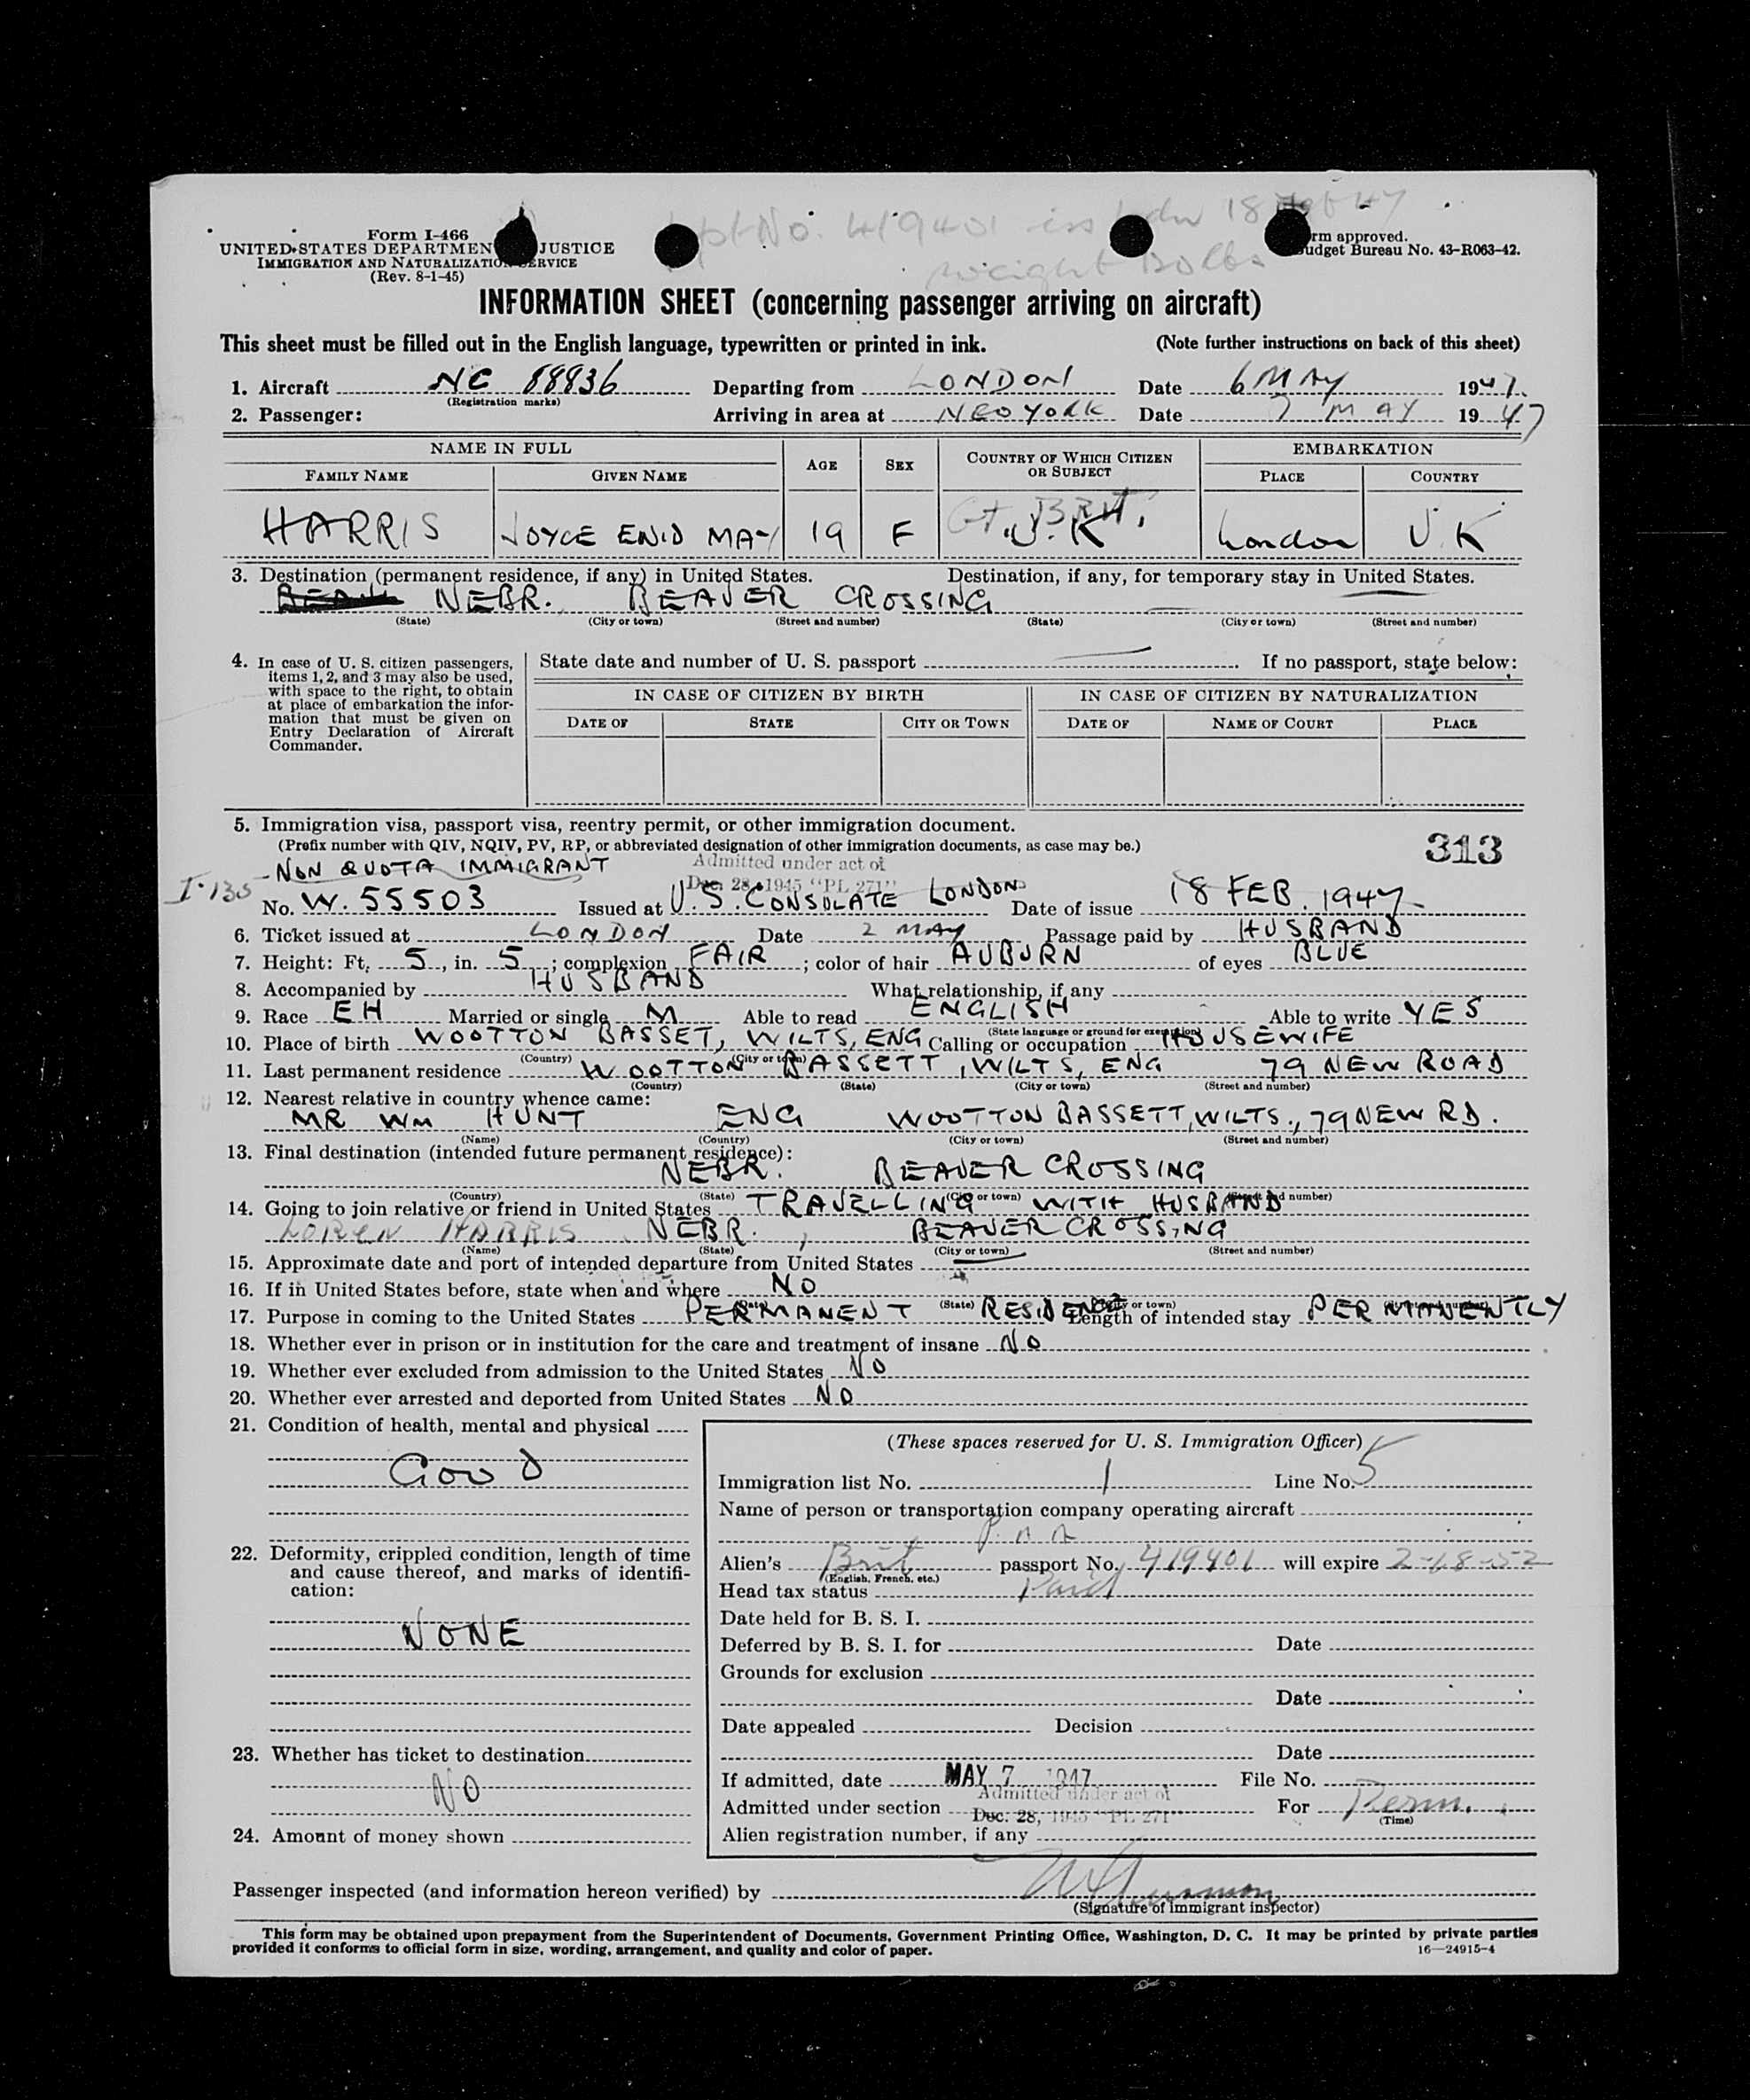 ppt No. 419401 iss Ldn 18 Feb 47
weight 120 lbs
Form I-466
UNITED STATES DEPARTMENT JUSTICE
IMMIGRATION AND NATURALIZATION SERVICE
(Rev. 8-1-45)
rm approved.
udget Bureau No. 43-R063-42.
INFORMATION SHEET (concerning passenger arriving on aircraft)
This sheet must be filled out in the English language, typewritten or printed in ink. (Note further instructions on back of this sheet)
1. Aircraft NC 88836 Departing from LONDON Date 6 MAY 1947.
(Registration marks)
2. Passenger: Arriving in area at NEW YORK Date 7 MAY 1947
NAME IN FULL AGE SEX COUNTRY OF WHICH CITIZEN OR SUBJECT EMBARKATION
FAMILY NAME GIVEN NAME PLACE COUNTRY
Gt. BRIT.
HARRIS JOYCE ENID MAY 19 F U.K London U.K
3. Destination (permanent residence, if any) in United States. Destination, if any, for temporary stay in United States.
NEBR. BEAVER CROSSING
(State) (City or town) (Street and number) (State) (City or town) (Street and number)
4. In case of U. S. citizen passengers, items 1, 2, and 3 may also be used, with space to the right, to obtain at place of embarkation the information that must be given on Entry Declaration of Aircraft Commander.
State date and number of U. S. passport . If no passport, state below:
IN CASE OF CITIZEN BY BIRTH IN CASE OF CITIZEN BY NATURALIZATION
DATE OF STATE CITY OR TOWN DATE OF NAME OF COURT PLACE
5. Immigration visa, passport visa, reentry permit, or other immigration document.
(Prefix number with QIV, NQIV, PV, RP, or abbreviated designation of other immigration documents, as case may be.)
313
- NON QUOTA IMMIGRANT Admitted under act of
I-130 Dec. 28, 1945 "PL 271"
No. W. 55503 Issued at U.S. CONSULATE LONDON Date of issue 18 FEB. 1947
6. Ticket issued at LONDON Date 2 MAY Passage paid by HUSBAND
7. Height: Ft. 5, in. 5; complexion FAIR; color of hair AUBURN of eyes BLUE
8. Accompanied by HUSBAND What relationship, if any
9. Race EH Married or single M Able to read ENGLISH Able to write YES
(State language or ground for exemption)
10. Place of birth WOOTTON BASSET, WILTS, ENG Calling or occupation HOUSEWIFE
(Country) (City or town)
11. Last permanent residence WOOTTON BASSETT, WILTS, ENG 79 NEW ROAD
(Country) (State) (City or town) (Street and number)
12. Nearest relative in country whence came:
MR WM HUNT ENG WOOTTON BASSETT, WILTS., 79 NEW RD.
(Name) (Country) (City or town) (Street and number)
13. Final destination (intended future permanent residence):
NEBR. BEAVER CROSSING
(Country) (State) (City or town) (Street and number)
14. Going to join relative or friend in United States TRAVELLING WITH HUSBAND
LOREN HARRIS NEBR., BEAVER CROSSING
(Name) (State) (City or town) (Street and number)
15. Approximate date and port of intended departure from United States
16. If in United States before, state when and where NO
(Date) (State) (City or town) (Street and number)
17. Purpose in coming to the United States PERMANENT RESIDENCE Length of intended stay PERMANENTLY
18. Whether ever in prison or in institution for the care and treatment of insane NO
19. Whether ever excluded from admission to the United States NO
20. Whether ever arrested and deported from United States NO
21. Condition of health, mental and physical
GOOD
22. Deformity, crippled condition, length of time and cause thereof, and marks of identification:
NONE
23. Whether has ticket to destination
NO
24. Amount of money shown
(These spaces reserved for U. S. Immigration Officer)
Immigration list No. 1 Line No. 5
Name of person or transportation company operating aircraft
P.A.A
Alien's Brit passport No. 419401 will expire 2-18-52
(English, French, etc.)
Head tax status Paid
Date held for B. S. I.
Deferred by B. S. I. for Date
Grounds for exclusion
Date
Date appealed Decision
Date
If admitted, date MAY 7 1947 File No.
Admitted under act of
Admitted under section Dec. 28, 1945 "PL 271" For Perm.
(Time)
Alien registration number, if any
Passenger inspected (and information hereon verified) by
(Signature of immigrant inspector)
This form may be obtained upon prepayment from the Superintendent of Documents, Government Printing Office, Washington, D. C. It may be printed by private parties
provided it conforms to official form in size, wording, arrangement, and quality and color of paper. 16—24915-4